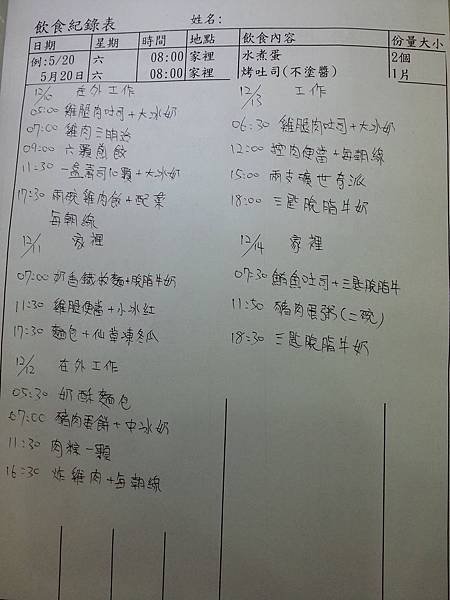 飲食紀錄表 姓名:
日期 星期 時間 地點 飲食內容 份量大小
例:5/20 六 08:00 家裡 水煮蛋 2個
5月20日 六 08:00 家裡 烤吐司(不塗醬) 1片
12/10 在外工作
05:00 雞腿肉吐司+大冰奶
07:00 雞肉三明治
09:00 六顆煎餃
11:30 一盒壽司10顆+大冰奶
17:30 兩碗雞肉飯+配菜
每朝綠
12/11 家裡
07:00 奶香鐵板麵+脫脂牛奶
11:30 雞腿便當+小冰紅
17:30 麵包+仙草凍冬瓜
12/12 在外工作
05:30 奶酥麵包
07:00 豬肉蛋餅+中冰奶
11:30 肉粽一顆
16:30 炸雞肉+每朝綠
12/13 工作
06:30 雞腿肉吐司+大冰奶
12:00 控肉便當+每朝綠
15:00 兩支曠世奇派
18:00 三匙脫脂牛奶
12/14 家裡
07:30 鮪魚吐司+三匙脫脂牛
11:50 豬肉蛋粥(二碗)
18:30 三匙脫脂牛奶